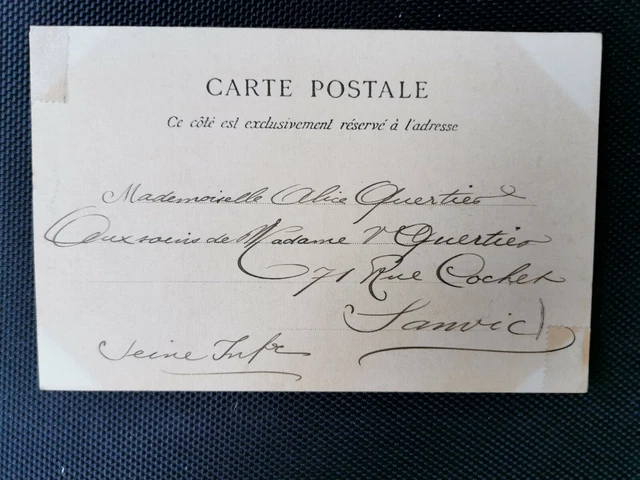 CARTE POSTALE
Ce côté est exclusivement réservé à l'adresse
Mademoiselle Alice Quertier
Aux soins de Madame Vᵉ Quertier
71 Rue Cochet
Sanvic
Seine Infre